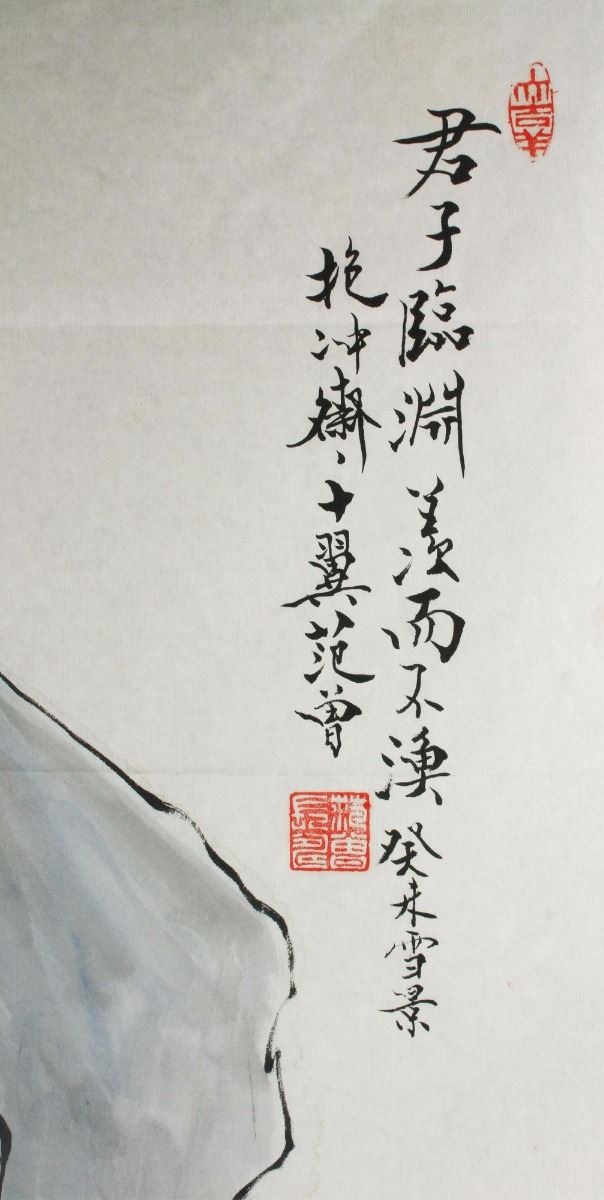 君子臨淵羨而不漁癸未雪景
抱冲齋、十翼范曾
大吉羊